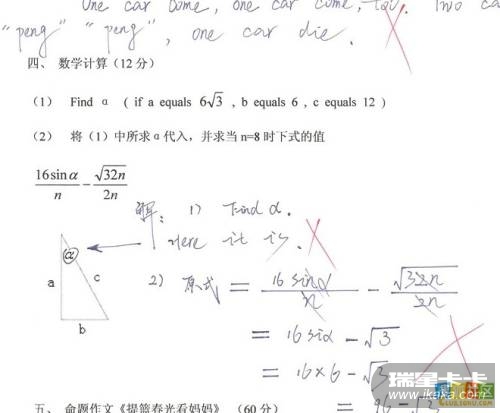 One car come, one car come, 
"peng" "peng", one car die.
四、 数学计算（12 分）
（1） Find α （ if a equals 6√3 , b equals 6 , c equals 12 ）
（2） 将（1）中所求α代入，并求当 n=8 时下式的值
16sinα/n − √32n/2n
解： 1) Find α.
Here it is.
α
a
c
b
2) 原式 = 16 sinα/n − √32n/2n
= 16 siα − √3
= 16×6 − √3
= 96 − √3
五、 命题作文《提篮春光看妈妈》 （60 分）
瑞星卡卡
www.ikaka.com